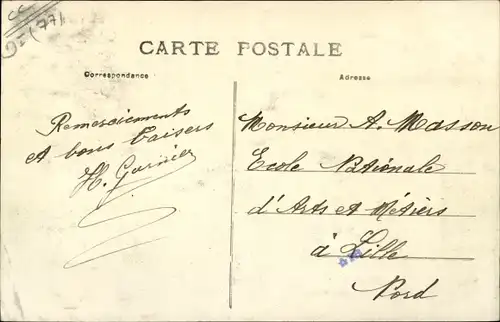 (77)
CARTE POSTALE
Correspondance
Adresse
Remerciements
et bons baisers
H. Garnier
Monsieur A. Masson
Ecole Nationale
d'Arts et Métiers
à Lille
Nord